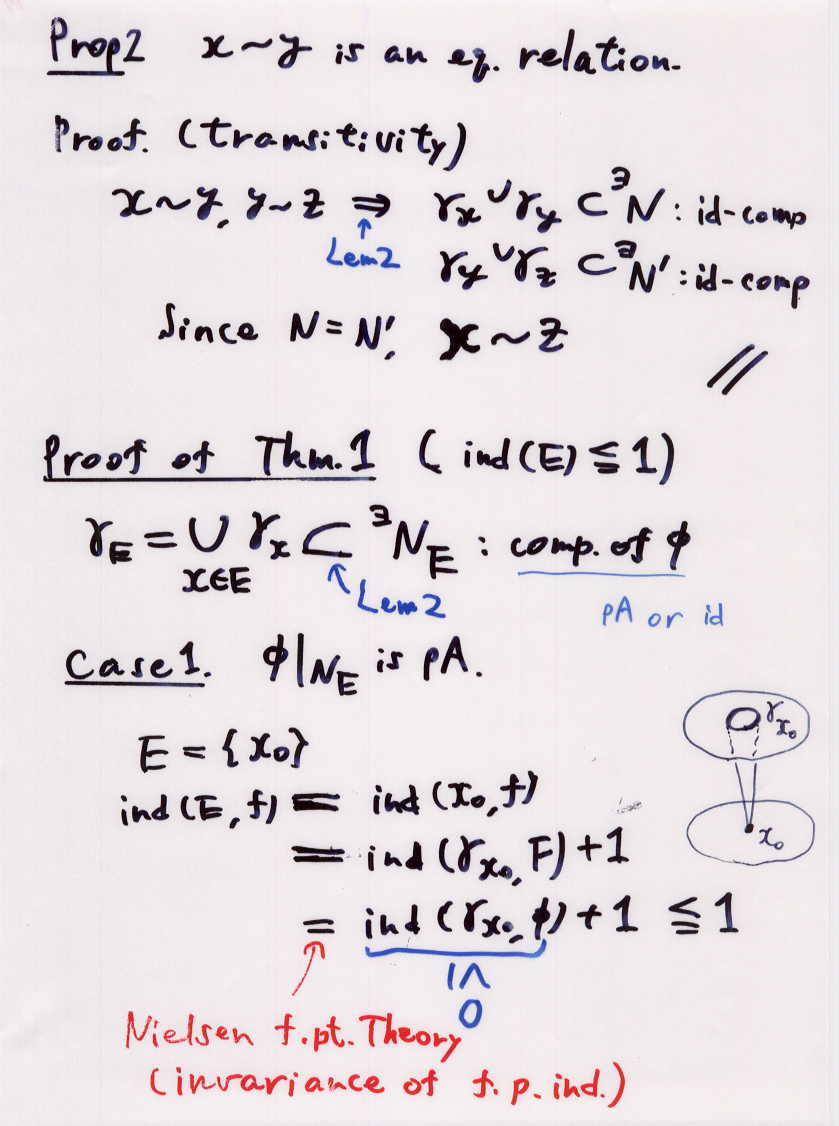 Prop2 x~y is an eq. relation.
Proof. (transitivity)
x~y, y~z ⇒ γx ∪ γy ⊂ ∃N : id-comp
↑
Lem2 γy ∪ γz ⊂ ∃N' : id-comp
Since N = N', x~z
//
Proof of Thm.1 ( ind(E) ≦ 1)
γE = ∪ γx ⊂ ∃NE : comp. of φ
x∈E
↑ Lem2
pA or id
Case1. φ|NE is pA.
E = {x₀}
ind(E, f) = ind(x₀, f)
= ind(γx₀, F) + 1
= ind(γx₀, φ) + 1 ≦ 1
|∧
0
Nielsen f.pt. Theory
(invariance of f.p. ind.)
γx₀
x₀